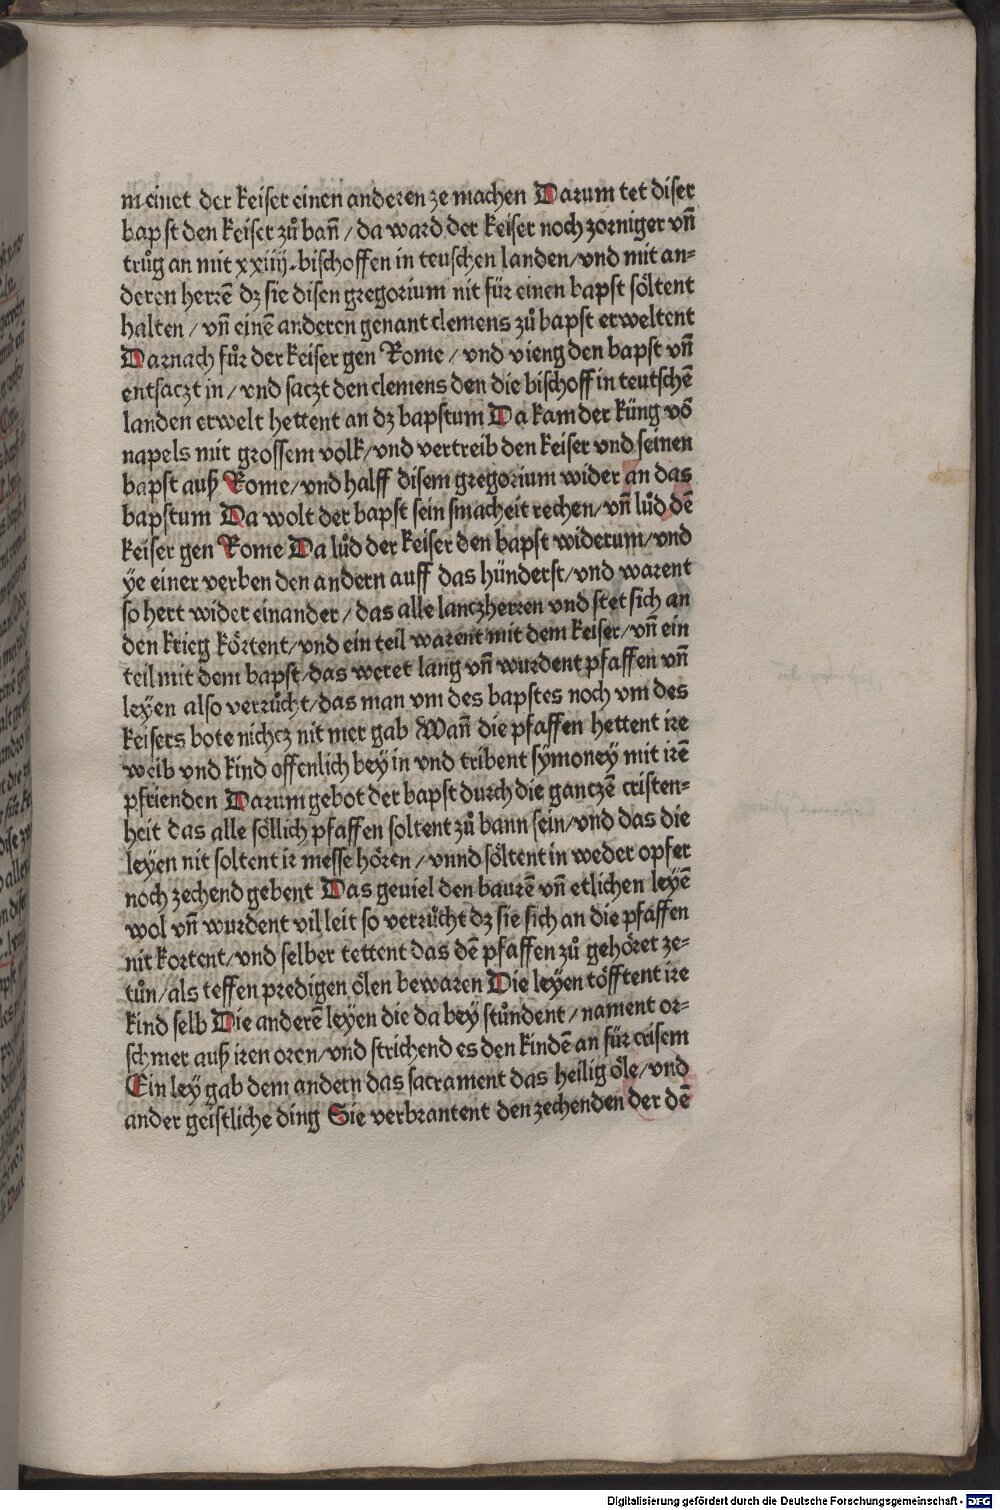 meinet der keiser einen anderen ze machen Darum tet diser
bapst den keiser zů bañ / da ward der keiser noch zorniger vñ
trůg an mit xxiiij. bischoffen in teuschen landen/vnd mit an=
deren herrē dz sie disen gregorium nit für einen bapst söltent
halten / vñ einē anderen genant clemens zů bapst erweltent
Darnach fůr der keiser gen Rome / vnd vieng den bapst vñ
entsaczt in / vnd saczt den clemens den die bischoff in teutschē
landen erwelt hettent an dz bapstum Da kam der küng vō
napels mit grossem volk/vnd vertreib den keiser vnd seinen
bapst auß Rome/vnd halff disem gregorium wider an das
bapstum Da wolt der bapst sein smacheit rechen/vñ lůd dē
keiser gen Rome Da lůd der keiser den bapst widerum/vnd
ye einer verben den andern auff das hünderst/vnd warent
so hert wider einander / das alle lanczherren vnd stet sich an
den krieg körtent/vnd ein teil warent mit dem keiser/vñ ein
teil mit dem bapst/das weret lang vñ wurdent pfaffen vñ
leyen also verrůcht/das man vm des bapstes noch vm des
keisers bote nichcz nit mer gab Wañ die pfaffen hettent ire
weib vnd kind offenlich bey in vnd tribent symoney mit irē
pfrienden Darum gebot der bapst durch die ganczē cristen=
heit das alle söllich pfaffen soltent zů bann sein/vnd das die
leyen nit soltent ir messe hören / vnnd söltent in weder opfer
noch zechend gebent Das geuiel den baurē vñ etlichen leyē
wol vñ wurdent vil leit so verrůcht dz sie sich an die pfaffen
nit kortent/vnd selber tettent das dē pfaffen zů gehöret ze=
tůn/als teffen predigen ölen bewaren Die leyen töfftent ire
kind selb Die anderē leyen die da bey stůndent / nament or=
schmer auß iren oren/vnd strichend es den kindē an für crisem
Ein ley gab dem andern das sacrament das heilig öle/vnd
ander geistliche ding Sie verbrantent den zechenden der dē
Digitalisierung gefördert durch die Deutsche Forschungsgemeinschaft - DFG